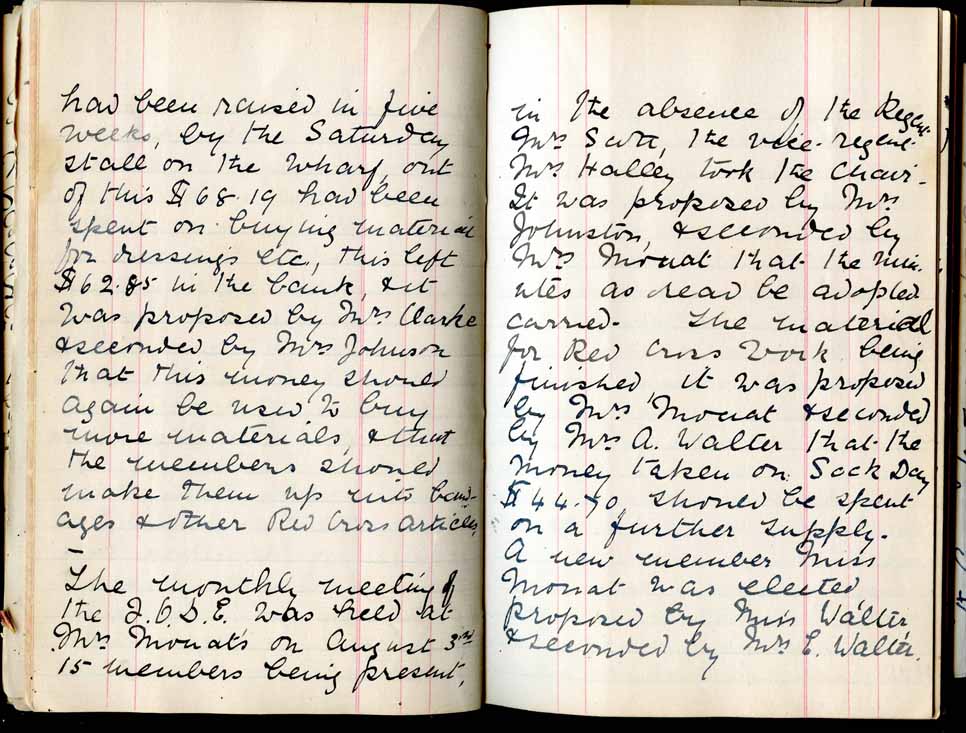 had been raised in five
weeks, by the Saturday
stall on the Wharf, out
of this $68.19 had been
spent on buying material
for dressings etc., this left
$62.85 in the bank, & it
was proposed by Mrs Clarke
& seconded by Mrs Johnson
that this money should
again be used to buy
more materials, & that
the members should
make them up into band-
ages & other Red Cross articles,
The monthly meeting of
the I.O.D.E. was held at
Mrs Mouat's on August 3rd
15 members being present,
in the absence of the Regent
Mrs Scott, the vice-regent
Mrs Halley took the chair-
It was proposed by Mrs
Johnston, & seconded by
Mrs Mouat that the min-
utes as read be adopted
carried- The material
for Red Cross Work being
finished, it was proposed
by Mrs Mouat & seconded
by Mrs A. Walter that the
money taken on Sock Day
$44.70 should be spent
on a further supply.
A new member Miss
Mouat was elected
proposed by Miss Walter
& seconded by Mrs E. Walter.